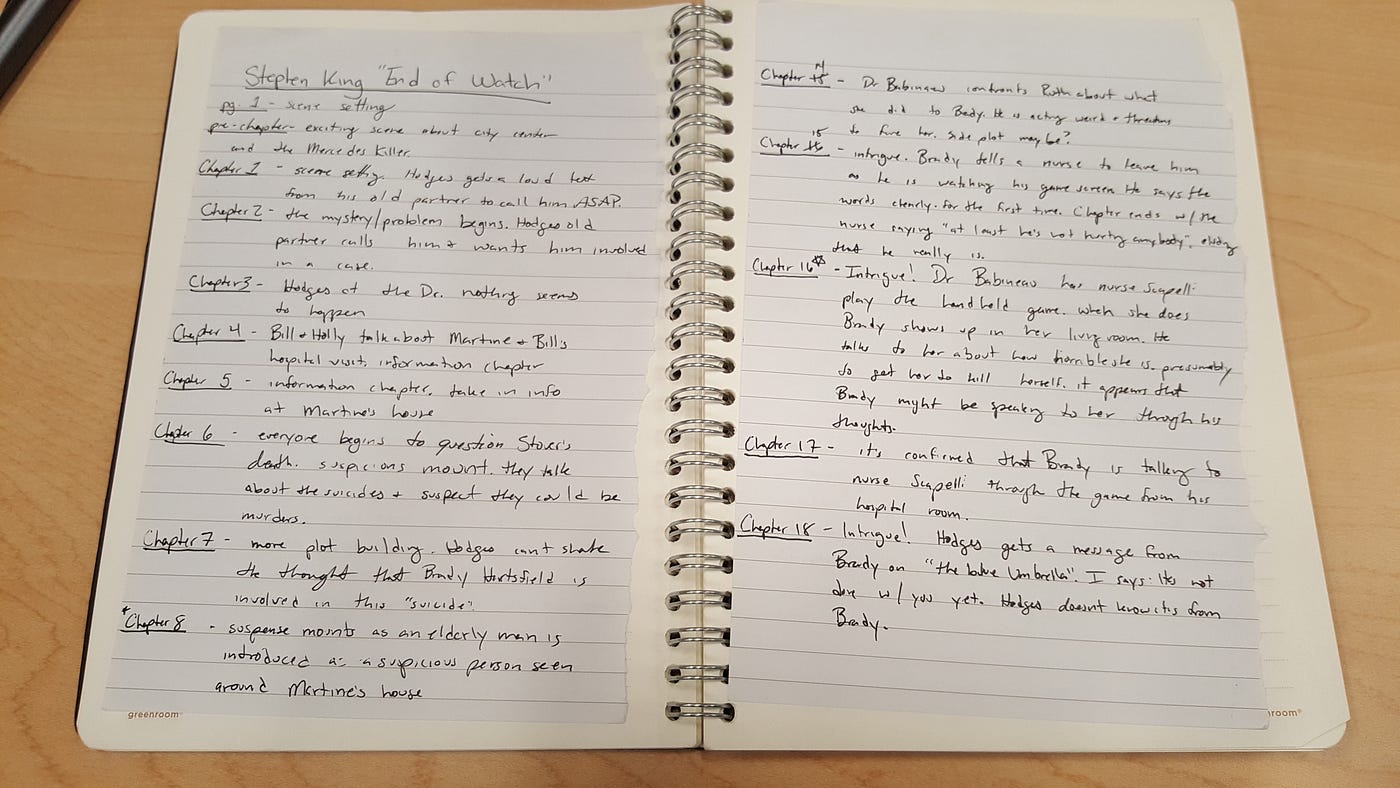 Stephen King "End of Watch"
pg. 1 - scene setting
pre-chapter - exciting scene about city center
and the Mercedes Killer.
Chapter 1 - sceene setting. Hodges gets a loud text
from his old partner to call him ASAP.
Chapter 2 - the mystery/problem begins. Hodges old
partner calls him & wants him involved
in a case.
Chapter 3 - Hodges at the Dr. nothing seems
to happen
Chapter 4 - Bill & Holly talk about Martine & Bill's
hospital visit. information chapter
Chapter 5 - information chapter. take in info
at Martine's house
Chapter 6 - everyone begins to question Stover's
death. suspicions mount. they talk
about the suicides & suspect they could be
murders.
Chapter 7 - more plot building. Hodges can't shake
the thought that Brady Hartsfield is
involved in this "suicide".
*Chapter 8 - suspense mounts as an elderly man is
introduced as a suspicious person seen
around Martine's house
greenroom®
14
Chapter - Dr Babineau confronts Ruth about what
she did to Brady. He is acting weird & threatens
to fire her. side plot maybe?
15
Chapter - intrigue. Brady tells a nurse to leave him
as he is watching his game screen. He says the
words clearly. for the first time. Chapter ends w/ the
nurse saying "at least he's not hurting anybody".
that he really is.
Chapter 16☆ - Intrigue! Dr Babineau has nurse Scapelli
play the handheld game. when she does
Brady shows up in her living room. He
talks to her about how horrible she is. presumably
to get her to kill herself. it appears that
Brady might be speaking to her through his
thoughts.
Chapter 17 - it's confirmed that Brady is talking to
nurse Scapelli through the game from his
hospital room.
Chapter 18 - Intrigue! Hodges gets a message from
Brady on "the blue Umbrella". I says: Its not
done w/ you yet. Hodges doesn't know its from
Brady.
room®